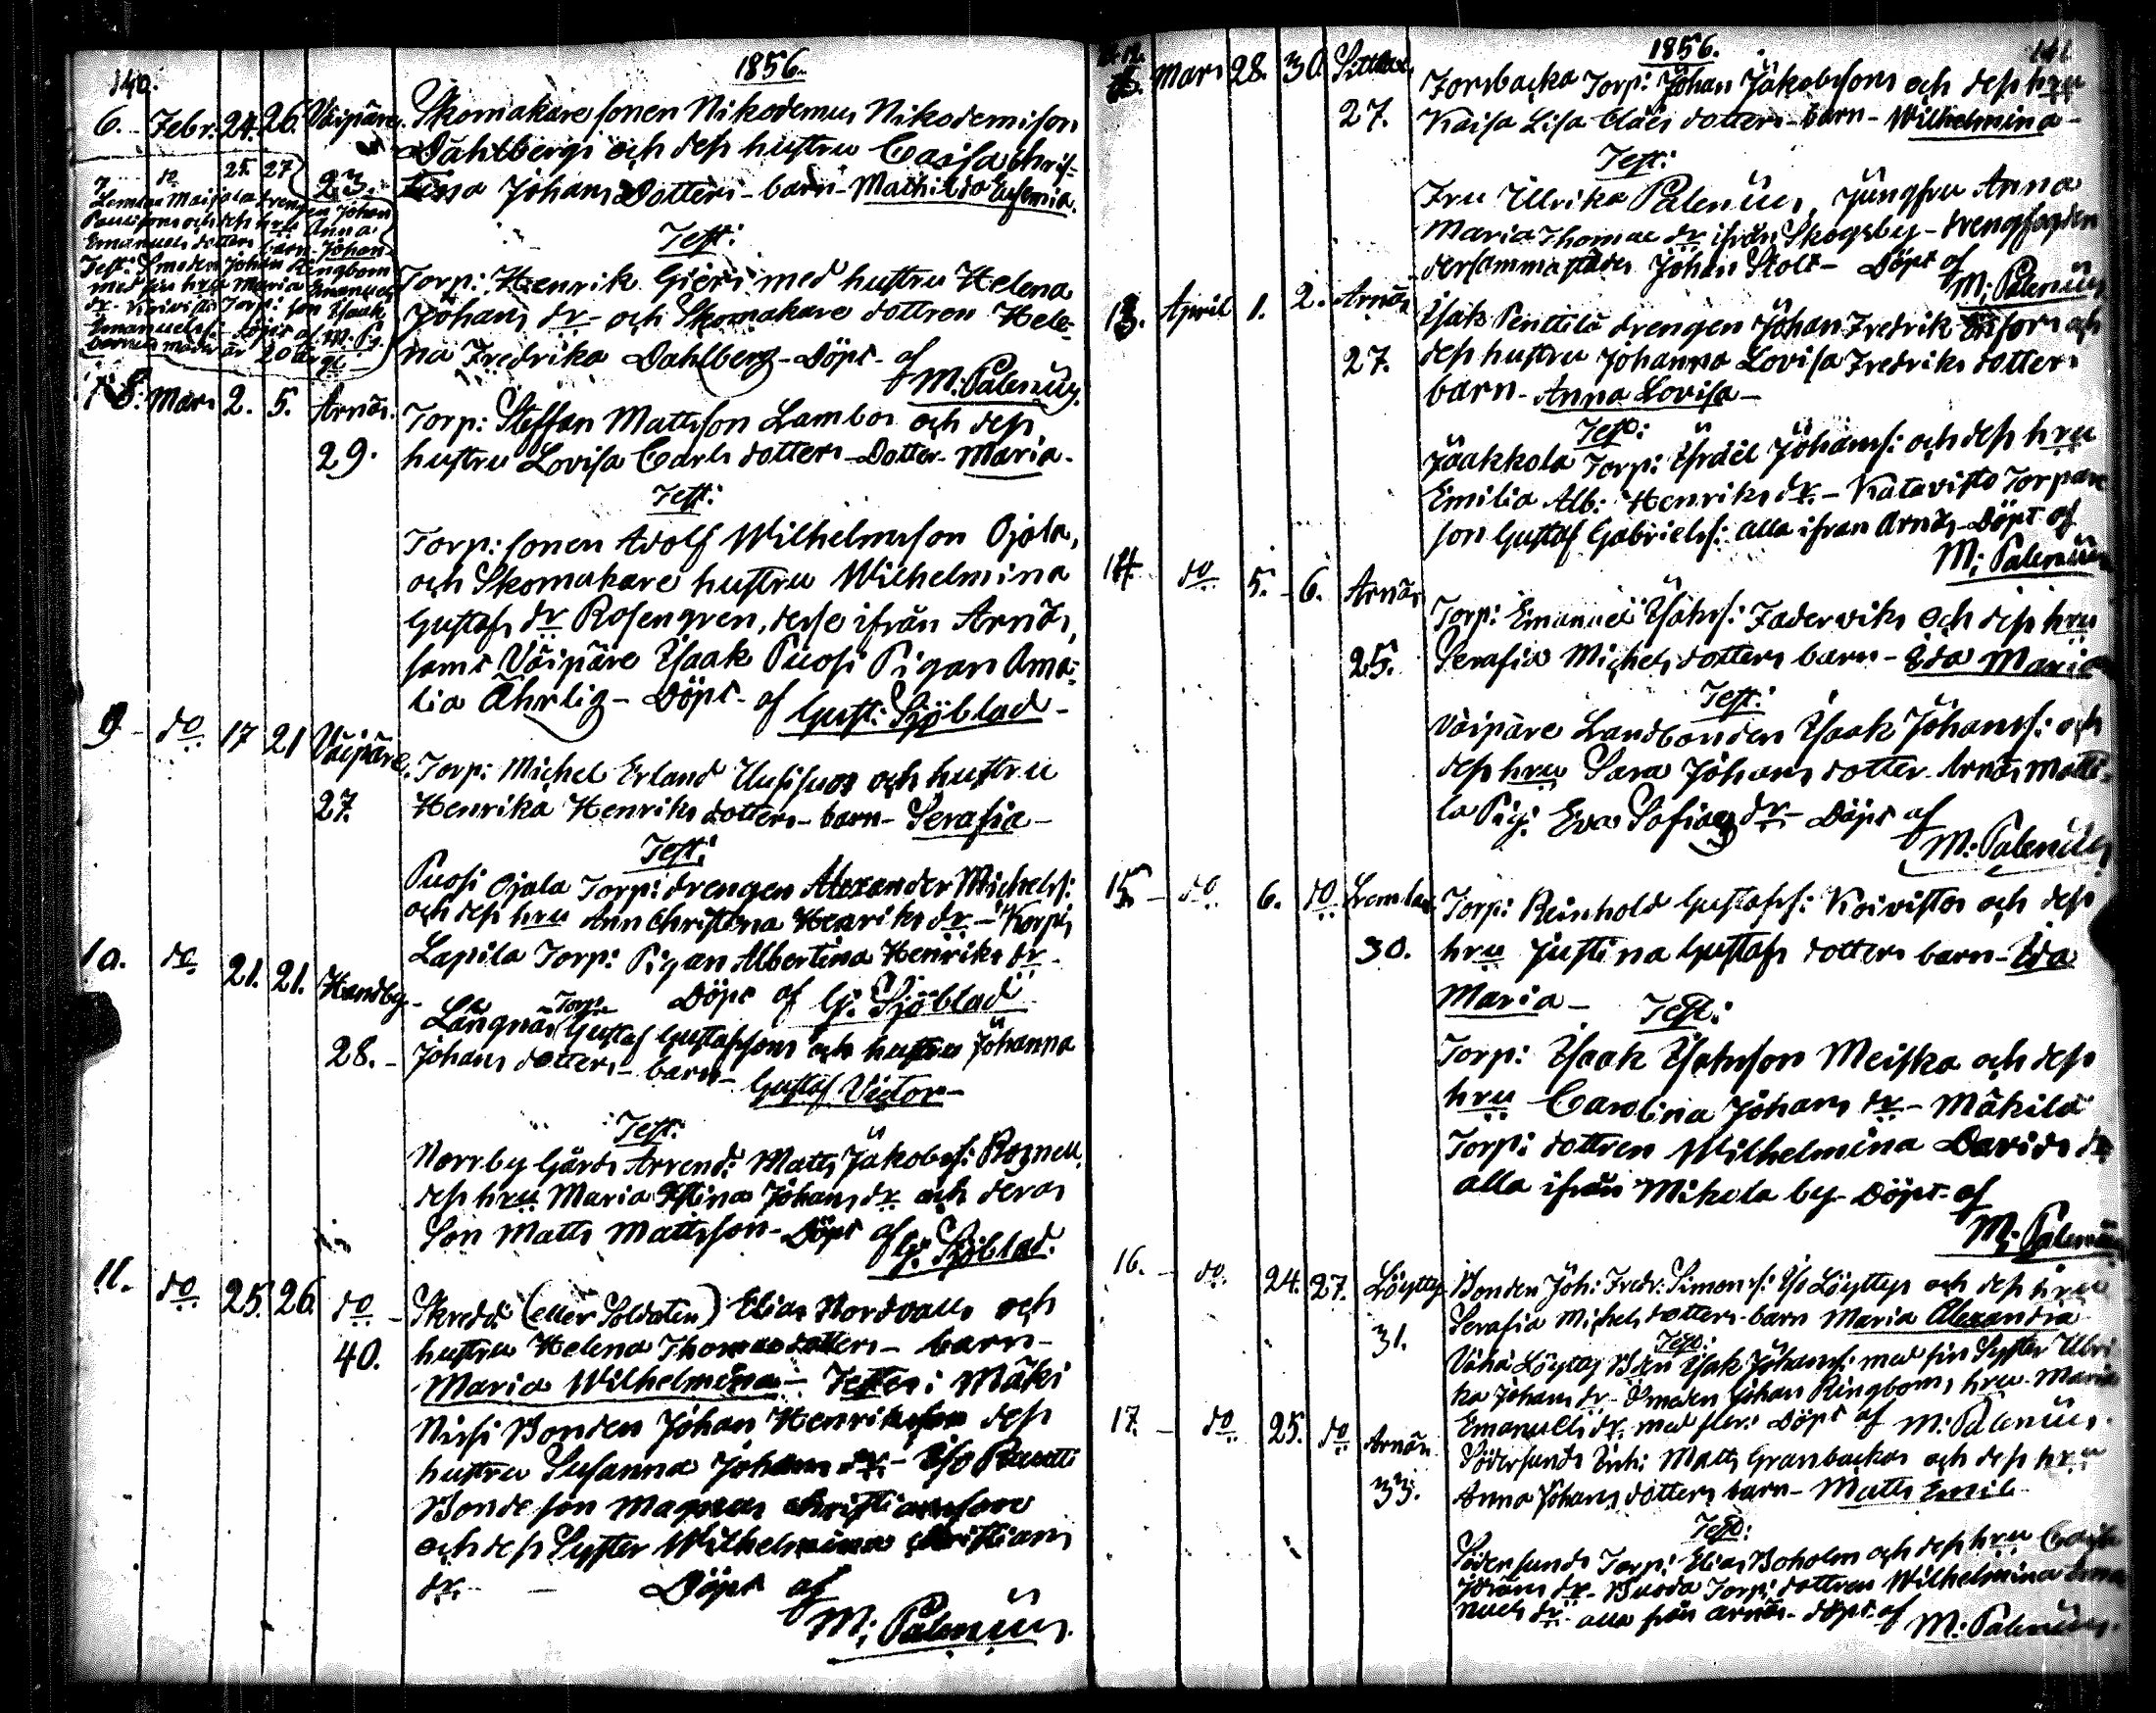 140.
1856.
6. Febr. 24. 26. Vaipäre.
23.
Skomakare sonen Nikodemus Nikodemison
Dahlbergs och dess hustru Caisa Chris-
tina Johans Dotters - barn - Mathilda Eufemia.
Test:
Torp: Henrik Giers med hustru Helena
Johans dr - och Skomakare dottren Hele-
na Fredrika Dahlberg - Döpt - af
M: Palenius.
7 do 25 27
Lemlax Maisala drengen Johan
Paulisons och dess hru Anna
Emanuels dotters barn - Johan
Test: Smeden Johan Ringbom
med sin hru Maria Emanuels
dr - Koivisto Torp: son Isaak
Emanuelss: - Döpt af M. Ps.
barnets moder är 20 år gl -
8. Mars 2. 5. Arnäs.
29.
Torp: Steffan Mattsson Lambos och dess
hustru Lovisa Carls dotters - Dotter - Maria -
Test:
Torp: sonen Adolf Wilhelmsson Ojala,
och Skomakare hustru Wilhelmina
Gustafs dr Rosengren, desse ifrån Arnäs,
samt Vaipäre Isaak Puosi Pigan Ama-
lia Ährlig - Döpt - af Gust: Sjöblad -
9 - do 17 21 Vaipäre.
27.
Torp: Michel Erland Uusisuos och hustru
Henrika Henriks dotters - barn - Serafia -
Test:
Puosi Ojala Torp: drengen Alexander Michelss:
och dess hru Ann Christina Henriks dr - Korpis
Lapila Torp: Pigan Albertina Henriks dr -
Döpt af G: Sjöblad
10. do 21. 21. Handby -
28. -
Långnäs Torp: Gustaf Gustafssons och hustru Johanna
Johans dotters - barn -
Gustaf Victor -
Test:
Norrby Gårds Arrend: Matts Jakobss: Roznell,
dess hru Maria Stina Johans dr och deras
Son Matts Mattsson - Döpt af G: Sjöblad.
11. do 25. 26. do -
40.
Skredd: (eller Soldaten) Elias Nordvalls och
hustru Helena Thomas dotters - barn -
Maria Wilhelmina - Testes: Mäki
Nissi Bonden Johan Henriksson dess
hustru Susanna Johans dr - Iso Pentti
Bonde son Magnus Christiansson
och dess Syster Wilhelmina Christians
dr - Döpt af
M: Palenius.
1856.
141
12. Mars 28. 30. Sittlax
27.
Forsbacka Torp: Johan Jakobssons och dess hru
Kaisa Lisa Claes dotters - barn - Wilhelmina -
Test:
Fru Ullrika Palenius, Jungfru Anna
Maria Thomae dr ifrån Skogsby - drengfogden
dersammastädes Johan Stolt - Döpt af
M: Palenius
13. April 1. 2. Arnäs
27.
Isaks Penttilä drengen Johan Fredrik
dess hustru Johanna Lovisa Fredriks dotters
barn - Anna Lovisa -
Test:
Jaakkola Torp: Israel Johanss: och dess hru
Emilia Alb: Henriks dr - Katavisto Torpare
son Gustaf Gabrielss: alla ifrån Arnäs - Döpt af
M: Palenius
14. do 5. - 6. Arnäs
25.
Torp: Emanuel Isakss: Faderviks och dess hru
Serafia Michels dotters barn - Eda Maria
Test:
Vaipäre Landbonden Isaak Johanss: och
dess hru Sara Johans dotter - Arnäs Matti-
la Pig: Eva Sofia dr - Döpt af
M: Palenius
15 - do 6. do Lemlax.
30.
Torp: Reinhold Gustafss: Koivistos och dess
hru Justina Gustafs dotters barn - Ida
Maria -
Test:
Torp: Isaak Isaksson Meiska och dess
hru Carolina Johans dr - Mäkilä
Torp: dottren Wilhelmina Davids dr
alla ifrån Mikola by - Döpt - af
M: Palenius
16. - do 24. 27. Löyttyy
31.
Bonden Joh: Fredr: Simonss: Iso Löyttys och dess hru
Serafia Michels dotters barn Maria Alexandra
Test:
Vähä Löyttys Bson Isak Johanss: med sin Syster Ulri-
ka Johans dr - Smeden Johan Ringboms hru - Maria
Emanuels dr - med fler: Döpt af M: Palenius.
17. - do 25. do Arnäs
33.
Södersunds Matts Granbackas och dess hru
Anna Johans dotters barn - Matts Emil
Test:
Södersunds Torp: Elias Boholm och dess hru Caisa
dr - Buoda Torp: dottren Wilhelmina Ema-
nuels dr - alla från Arnäs - döpt af M: Palenius.